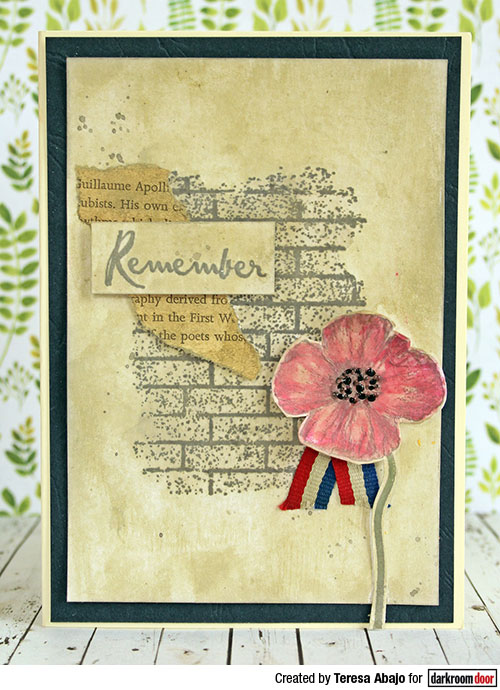 Guillaume Apoll
ubists. His own
Remember
aphy derived fro
nt in the First W
of the poets whos
Created by Teresa Abajo for darkroomdoor